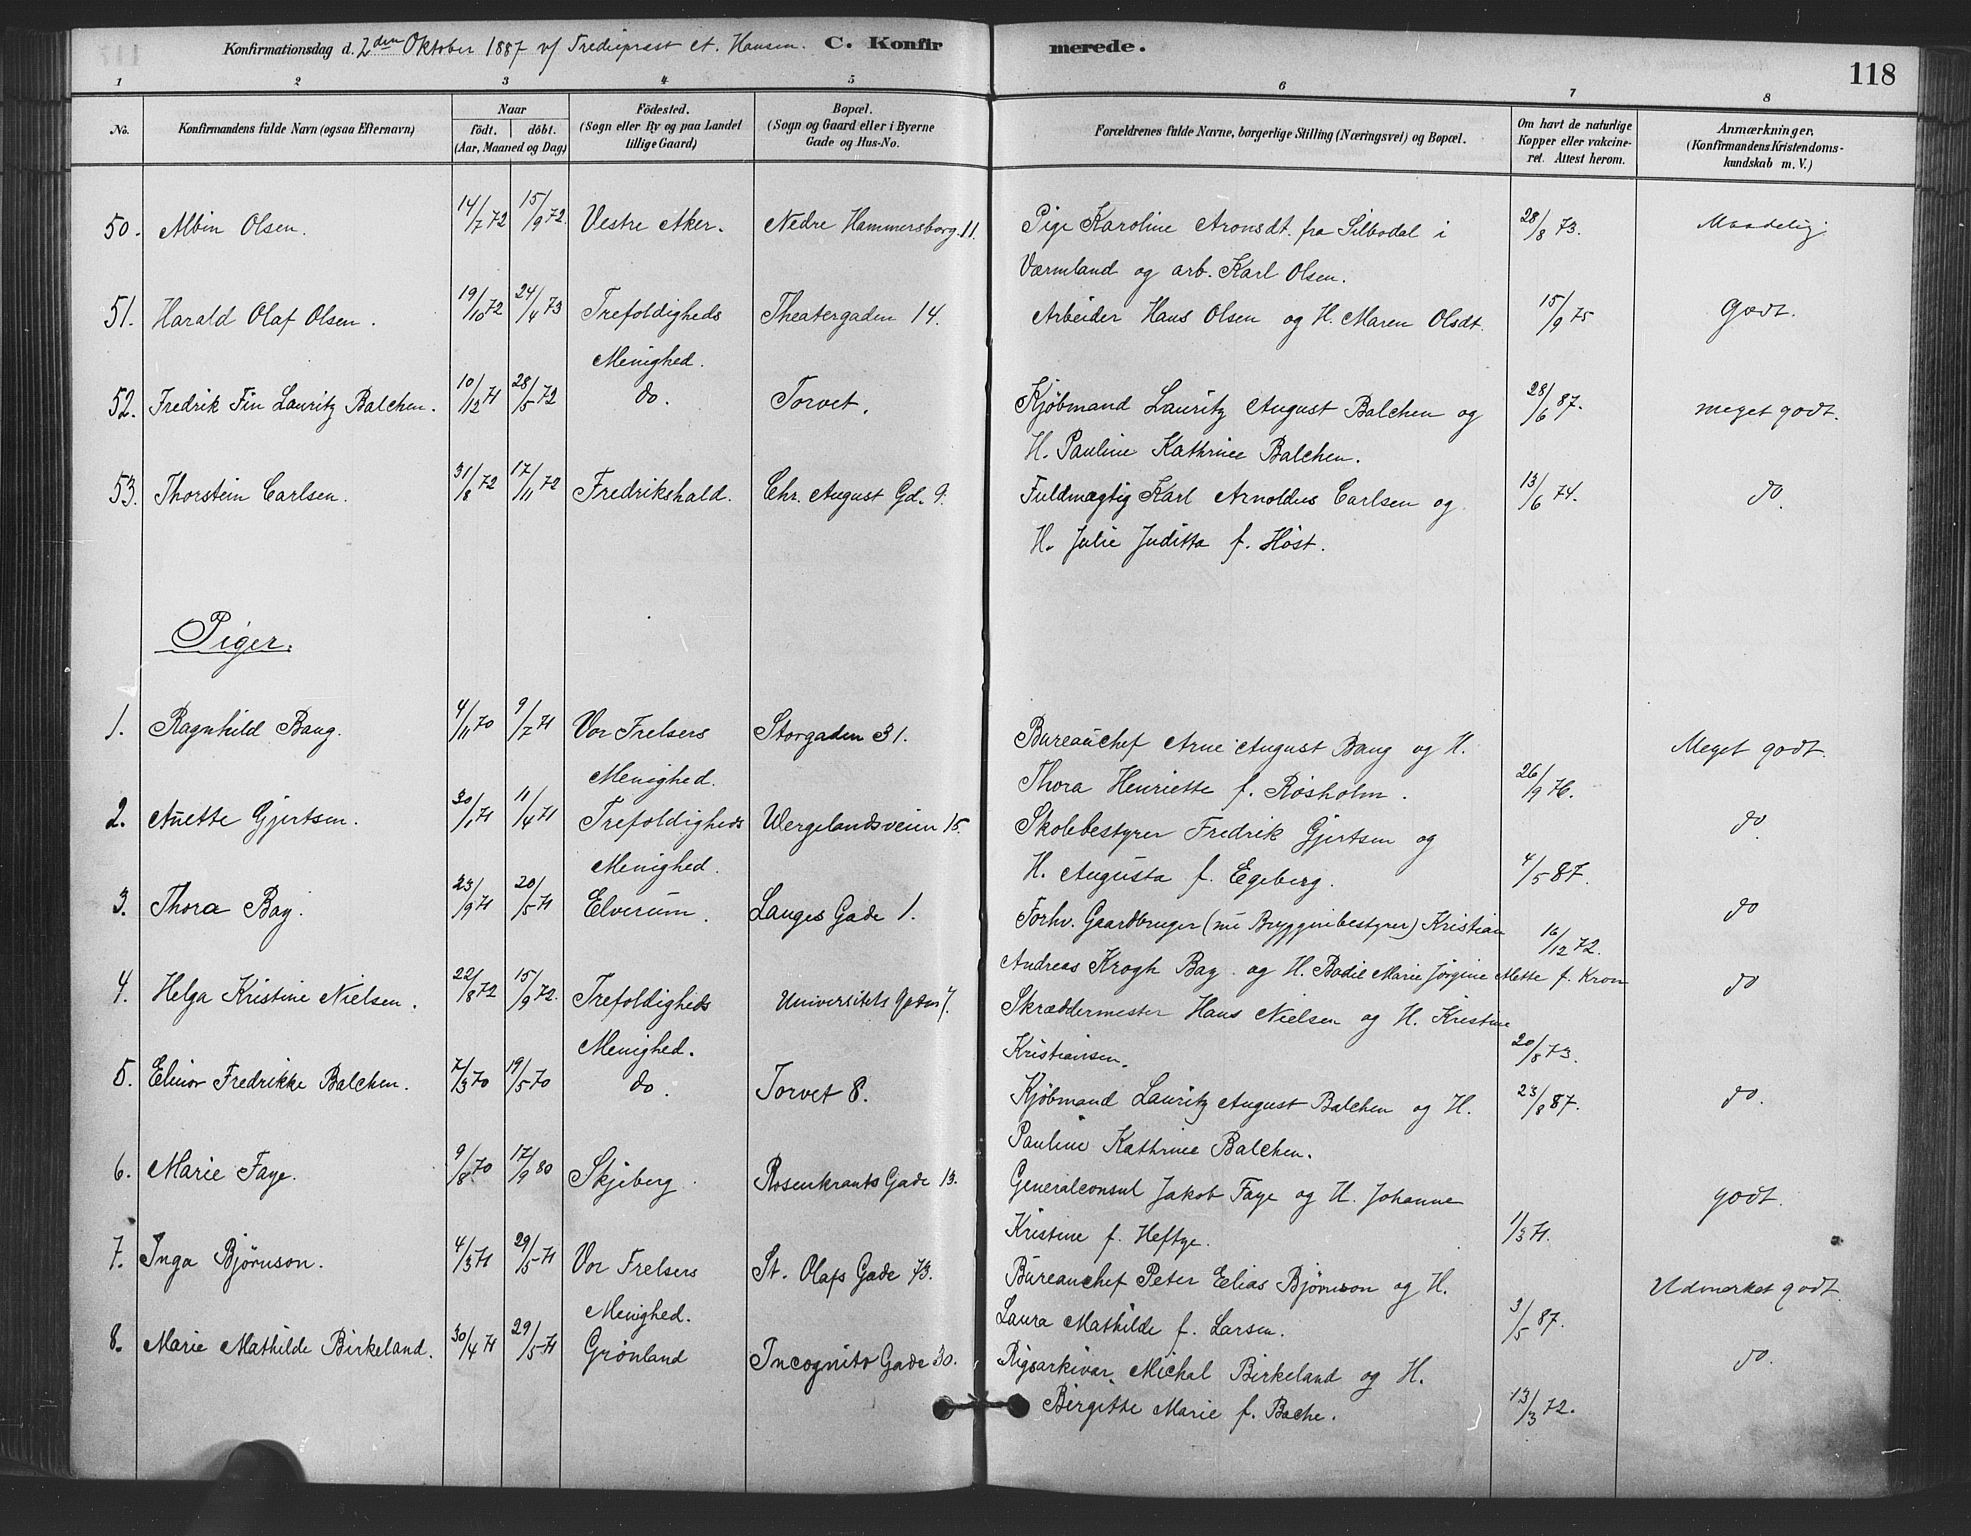 Konfirmationsdag d. 2den Oktober 1887 v/ Trediepræst A. Hansen. C. Konfirmerede.
118
1 2 3 4 5 6 7 8
No. Konfirmandens fulde Navn (ogsaa Efternavn) Naar födt. döbt. (Aar, Maaned og Dag) Födested. (Sogn eller By og paa Landet tillige Gaard) Bopæl. (Sogn og Gaard eller i Byerne Gade og Hus-No. Forældrenes fulde Navne, borgerlige Stilling (Næringsvei) og Bopæl. Om havt de naturlige Kopper eller vakcineret. Attest herom. Anmærkninger. (Konfirmandens Kristendomskundskab m. V.)
50. Albin Olsen. 14/7 72 15/9 72. Vestre Aker. Nedre Hammersborg 11. Pige Karoline Aronsdt. fra Silbodal i 28/8 73. Maadelig.
Værmland og arb. Karl Olsen.
51. Harald Olaf Olsen. 19/10 72 24/4 73 Trefoldigheds Theatergaden 14. Arbeider Hans Olsen og H. Maren Olsdt. 15/9 75 Godt.
Menighed.
52. Fredrik Fin Lauritz Balchen. 10/12 71 28/5 72 do. Torvet. Kjøbmand Lauritz August Balchen og 28/6 87. meget godt.
H. Pauline Kathrine Balchen.
53. Thorstein Carlsen. 31/8 72 17/11 72 Fredrikshald. Chr. August Gd. 9. Fuldmægtig Karl Arnoldus Carlsen og 13/6 74. do.
H. Julie Juditta f. Høst.
Piger.
1. Ragnhild Bang. 4/11 70 9/7 71 Vor Frelsers Storgaden 31. Bureauchef Arne August Bang og H. Meget godt.
Menighed. Thora Henriette f. Røsholm. 26/9 76.
2. Anette Gjertsen. 30/1 71 11/4 71 Trefoldigheds Wergelandsveien 15. Skolebestyrer Fredrik Gjertsen og do.
Menighed. H. Augusta f. Egeberg. 4/5 87.
3. Thora Bay. 23/9 71 20/5 71 Elverum. Langes Gade 1. Forhv. Gaardbruger (nu Bryggeribestyrer) Kristian 16/12 72. do
Andreas Krogh Bay. og H. Bodil Marie Jørgine Mette f. Kron
4. Helga Kristine Nielsen. 22/8 72 15/9 72. Trefoldigheds Universitets Gaden 7. Skræddermester Hans Nielsen og H. Kristine do
Menighed. Kristiansen. 20/8 73.
5. Elinor Fredrikke Balchen. 7/3 70 19/5 70 do. Torvet 8. Kjøbmand Lauritz August Balchen og H. 23/8 87. do.
Pauline Kathrine Balchen.
6. Marie Faye. 9/8 70 17/9 80 Skjeberg. Rosenkrants Gade 13. Generalconsul Jakob Faye og H. Johanne godt.
Kristine f. Heftye. 1/3 71.
7. Inga Bjørnson. 4/3 71 29/5 71 Vor Frelsers St. Olafs Gade 73. Bureauchef Peter Elias Bjørnson og H. Udmerket godt.
Menighed. Laura Mathilde f. Larsen. 3/5 87.
8. Marie Mathilde Birkeland. 30/4 71 29/5 71 Grønland Incognito Gade 30. Rigsarkivar Michal Birkeland og H. do.
Birgitte Marie f. Bache. 13/3 72.